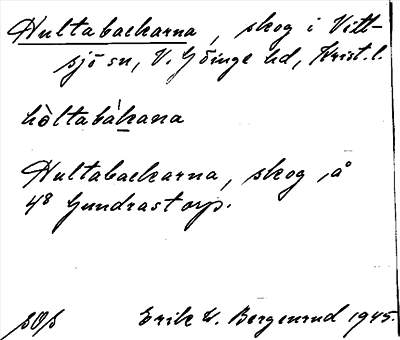 Hultabackarna, skog i Vitt-
sjö sn, V. Göinge hd, Krist. l.
hòltabàkana
Hultabackarna, skog, å
4⁸ Gundrastorp.
Erik W. Bergenrud 1945.